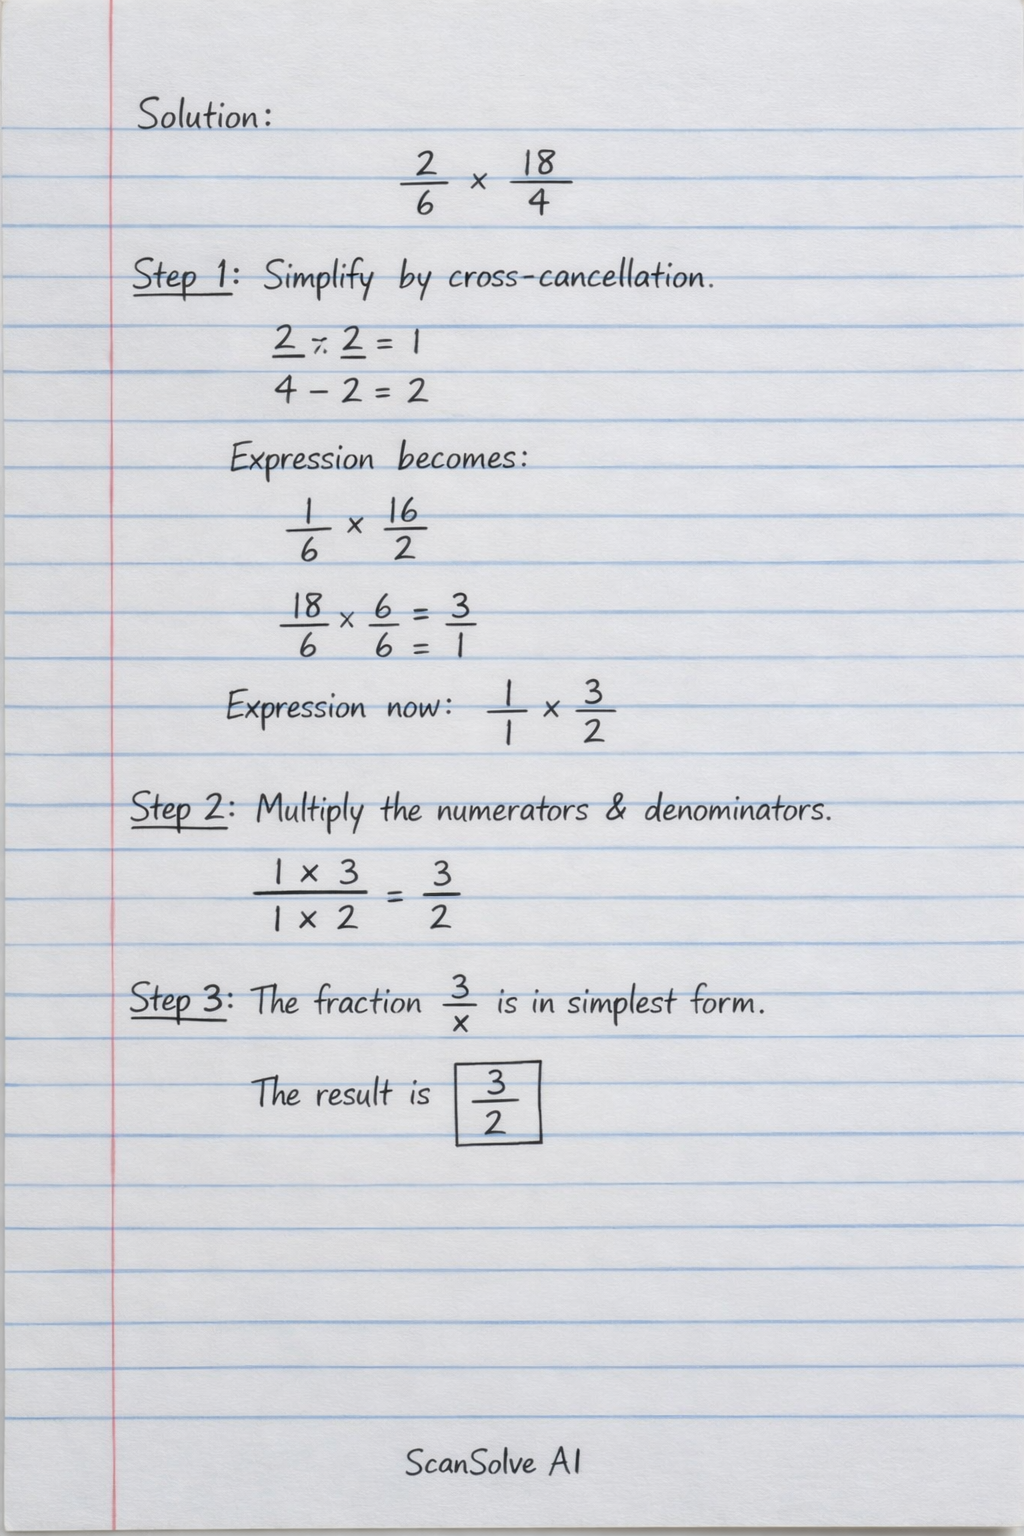 Solution:
2/6 × 18/4
Step 1: Simplify by cross-cancellation.
2 ÷ 2 = 1
4 − 2 = 2
Expression becomes:
1/6 × 16/2
18/6 × 6/6 = 3/1
Expression now: 1/1 × 3/2
Step 2: Multiply the numerators & denominators.
1 × 3 / 1 × 2 = 3/2
Step 3: The fraction 3/x is in simplest form.
The result is 3/2
ScanSolve AI